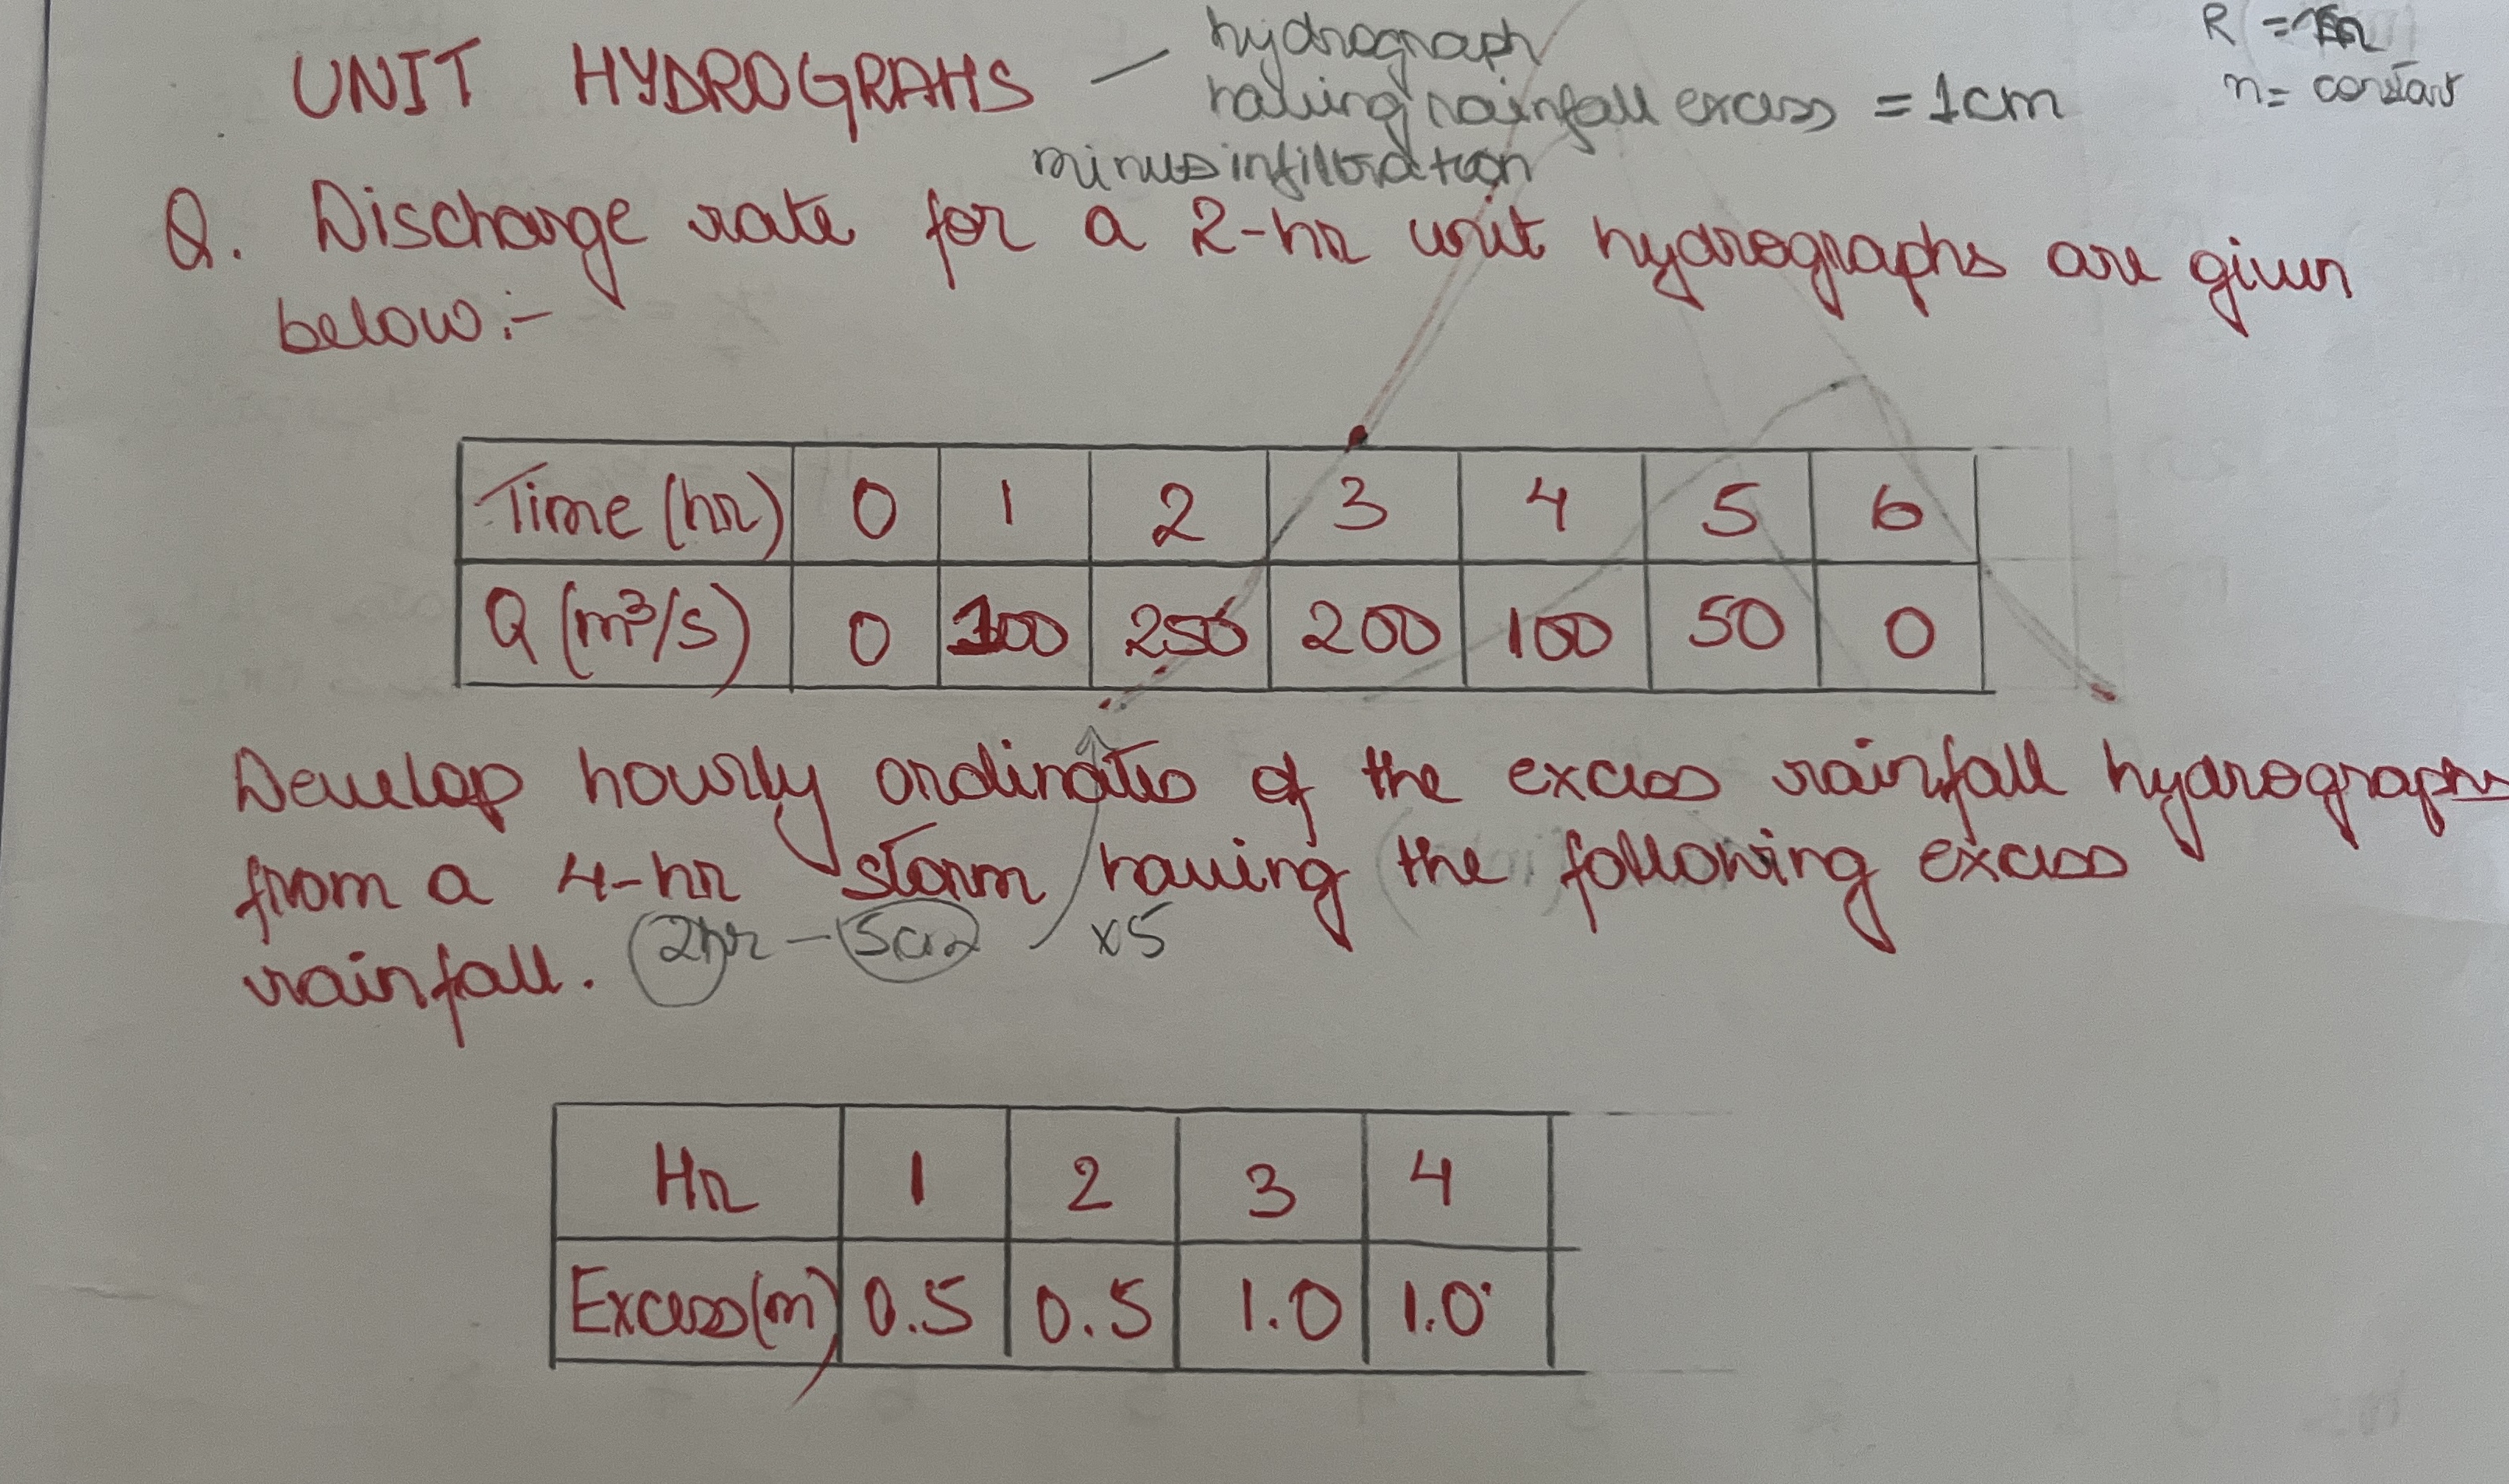 UNIT HYDROGRAHS — hydrograph
having rainfall excess = 1cm
minus infiltration
R =
n = constant
Q. Discharge rate for a 2-hr unit hydrographs are given
below:-
Time (hr) 0 1 2 3 4 5 6
Q (m³/s) 0 100 250 200 100 50 0
Develop hourly ordinates of the excess rainfall hydrographs
from a 4-hr storm having the following excess
rainfall. 2hr — 5cm x5
Hr 1 2 3 4
Excess(m) 0.5 0.5 1.0 1.0